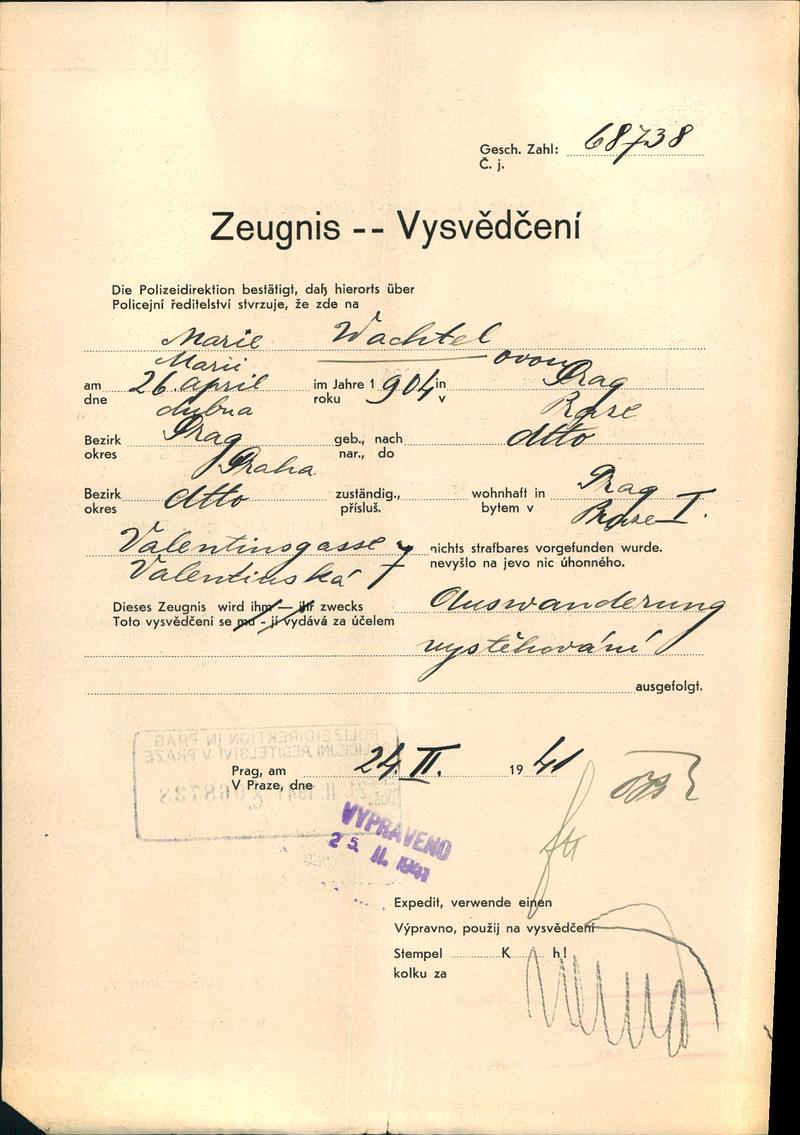 Gesch. Zahl: 68738
Č. j.
Zeugnis -- Vysvědčení
Die Polizeidirektion bestätigt, daß hierorts über
Policejní ředitelství stvrzuje, že zde na
Marie Wachtel
Marii ovou
am 26. april im Jahre 1904 in Prag
dne dubna roku v Praze
Bezirk Prag geb., nach dtto
okres Praha nar., do
Bezirk dtto zuständig., wohnhaft in Prag
okres přísluš. bytem v Praze I.
Valentinsgasse 7 nichts strafbares vorgefunden wurde.
Valentinská nevyšlo na jevo nic úhonného.
Dieses Zeugnis wird ihm — ihr zwecks Auswanderung
Toto vysvědčení se mu - jí vydává za účelem
vystěhování
ausgefolgt.
POLIZEIDIREKTION IN PRAG
POLICEJNÍ ŘEDITELSTVÍ V PRAZE
21. II. 1941 068738
Prag, am 24. II. 1941
V Praze, dne
VYPRAVENO
25. II. 1941
Expedit, verwende einen
Výpravno, použij na vysvědčení
Stempel K h!
kolku za